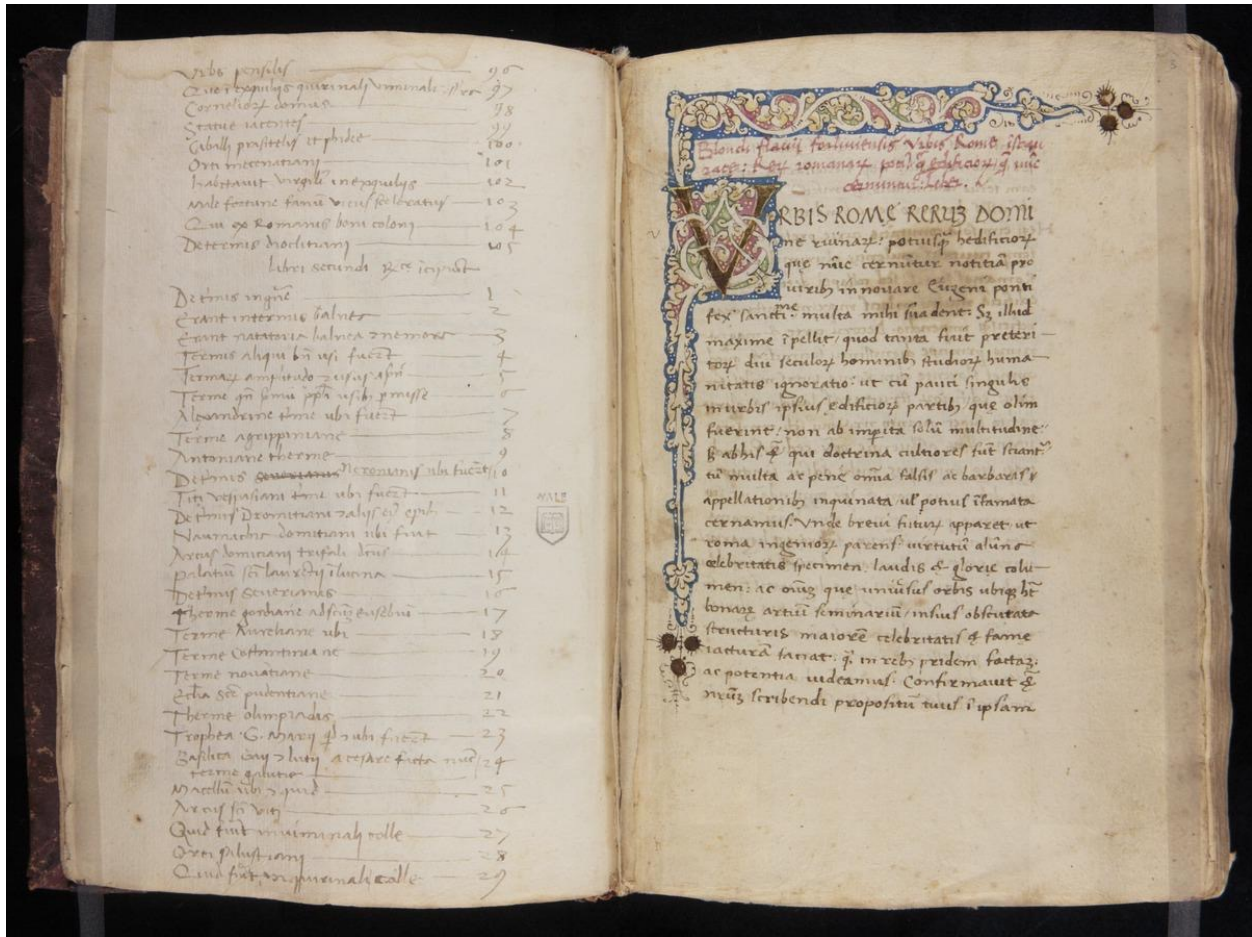 Urbs pensilis 96
Que i exquiliis quirinali viminali 97
Cornelioꝝ domus 98
Statue iacentes 99
Caballi praxitelis et phidie 100
Orti mecenatiani 101
habitavit virgili in exquiliis 102
Male fortune fanū vicus sceleratus 103
Qui ex Romanis boni coloni 104
De termis dioclitiani 105
libri secundi īcipiūt
De tmis 1
Erant in termis balnea 2
Erant natatoria balnea ⁊ nemora 3
Termis aliqui bn̄ usi fuerūt 4
Termaꝝ amplitudo ⁊ usus 5
Terme 6
Alexandrine tme ubi fuerūt 7
Terme agrippiniane 8
Antoniane therme 9
De termis Neronianis ubi fuerūt 10
Titi vespasiani tme ubi fuerūt 11
De termis Domitiani ⁊ aliis 12
Naumachie domitiani ubi fuit 13
Arcus domitiani trifali dcus 14
Palatiū sci laurētii ī lucina 15
De termis Severianis 16
Therme gordiane ad scm̄ eusebiū 17
Terme Aureliane ubi 18
Terme Costantiniane 19
Terme novatiane 20
Ecclia Sce pudentiane 21
Therme olimpiadis 22
Trophea G. Marii ⁊ ubi fuerūt 23
Basilica Gaii ⁊ lutii a cesare facta nūc 24
terme
Macellū ubi ⁊ quid 25
Arcus sci viti 26
Quid fuit in viminali colle 27
Orti salustiani 28
Quid fuit in quirinali colle 29
WALE
3
Blondi flavii forliviensis Urbis Rome
ratę: Reꝝ romanaꝝ edificioꝝ nūc
cernunt liber.
VRBIS ROMĘ RERUȜ DOMI
nę ruinaꝝ: potiusqȝ hedificioꝝ
que nūc cernūtur notitiā pro
viribȝ innovare Eugeni ponti
fex sanctme multa mihi suadent: Sȝ illud
maxime īpellit, quod tanta fuit preteri
toꝝ diu seculoꝝ hominibȝ studioꝝ huma
nitatis ignoratio: ut cū pauci singulis
in urbis ipsius edificioꝝ partibȝ que olim
fuerint: non ab imperita solū multitudine:
sȝ ab his qui doctrina cultiores sūt sciant
tū multa ac pene omīa falsis ac barbaris
appellationibȝ inquinata vel potius īfamata
cernamus. Unde brevi futuꝝ apparet ut
roma ingenioꝝ parens virtutū alūna
celebritatis specimen: laudis & glorie colu
men: ac oīuȝ que universus orbis ubiqȝ hȝ
bonaꝝ artiū seminariū: insius obscurata
structuris maiorē celebritatis & fame
iacturā faciat: q̄ in rebȝ pridem factaȝ
ac potentia videamus. Confirmavit &
nrūȝ scribendi propositū tuus ī ipsam